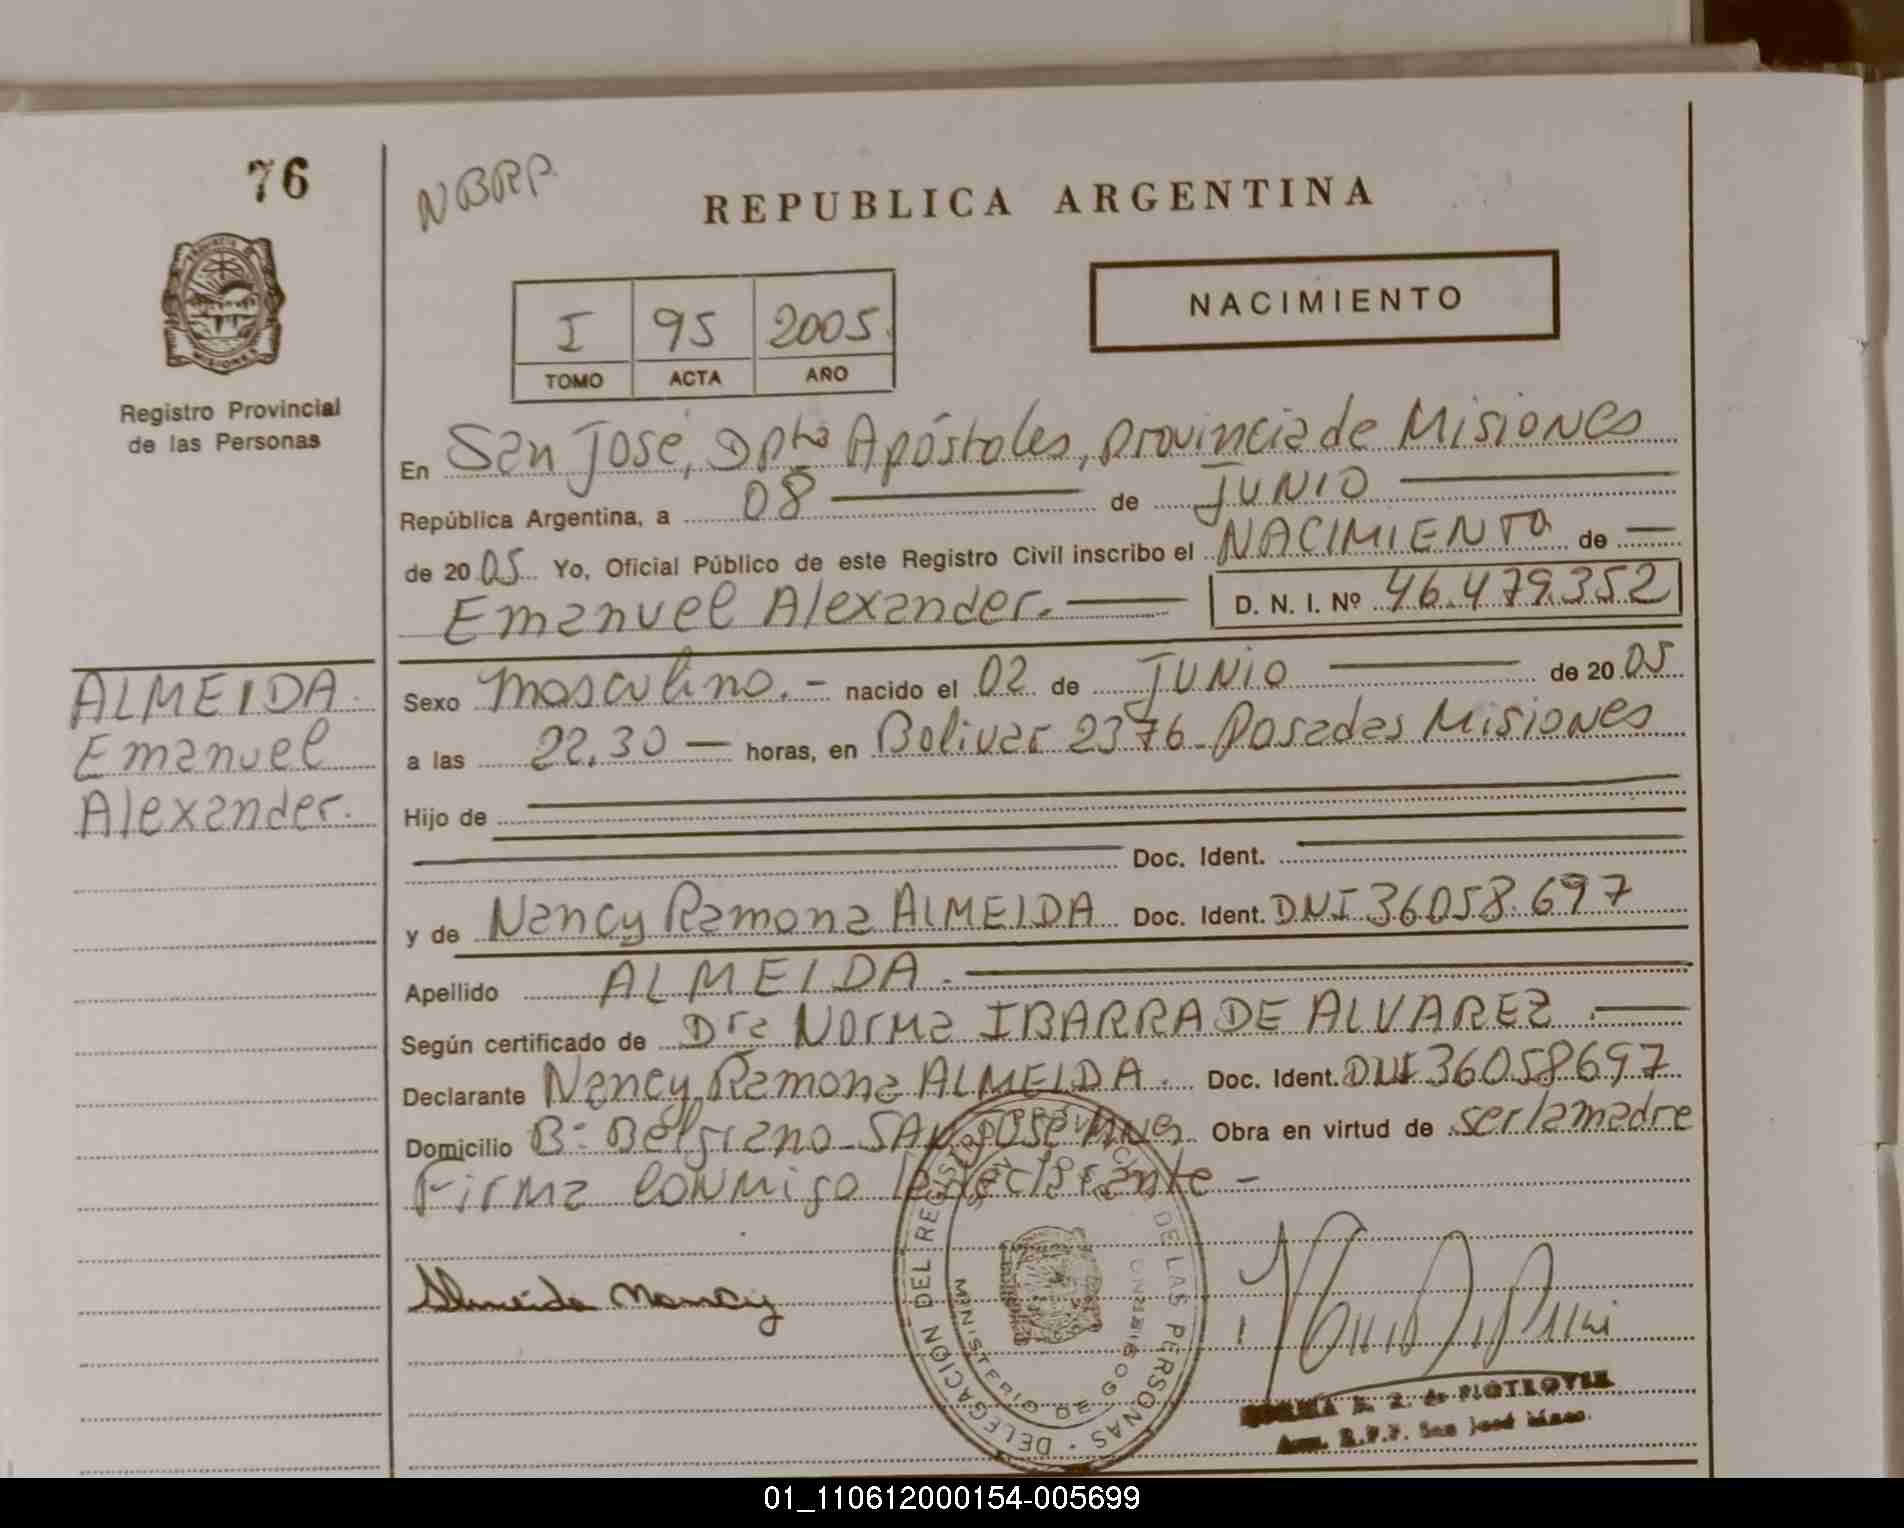 76
NBRP.
REPUBLICA ARGENTINA
I 95 2005.
TOMO ACTA AÑO
NACIMIENTO
PROVINCIA DE
MISIONES
Registro Provincial
de las Personas
En San José, Dpto Apóstoles, provincia de Misiones
República Argentina, a 08 de JUNIO
de 2005 Yo, Oficial Público de este Registro Civil inscribo el NACIMIENTO de
Emanuel Alexander. D. N. I. Nº 46.479.352
ALMEIDA.
Emanuel
Alexander.
Sexo masculino.- nacido el 02 de JUNIO de 2005
a las 22.30 horas, en Bolivar 2376 - Posadas Misiones
Hijo de
Doc. Ident.
y de Nancy Ramona ALMEIDA Doc. Ident. DNI 36058.697
Apellido ALMEIDA.
Según certificado de Dra Norma IBARRA DE ALVAREZ.
Declarante Nancy Ramona ALMEIDA. Doc. Ident. DNI 36058697
Domicilio Bº Belgrano - SAN JOSE Mnes Obra en virtud de ser la madre
Firma conmigo la declarante -
DELEGACION DEL REGISTRO PROVINCIAL DE LAS PERSONAS
MINISTERIO DE GOBIERNO
Almeida Nancy
R.P.P. San José Mnes.
01_110612000154-005699